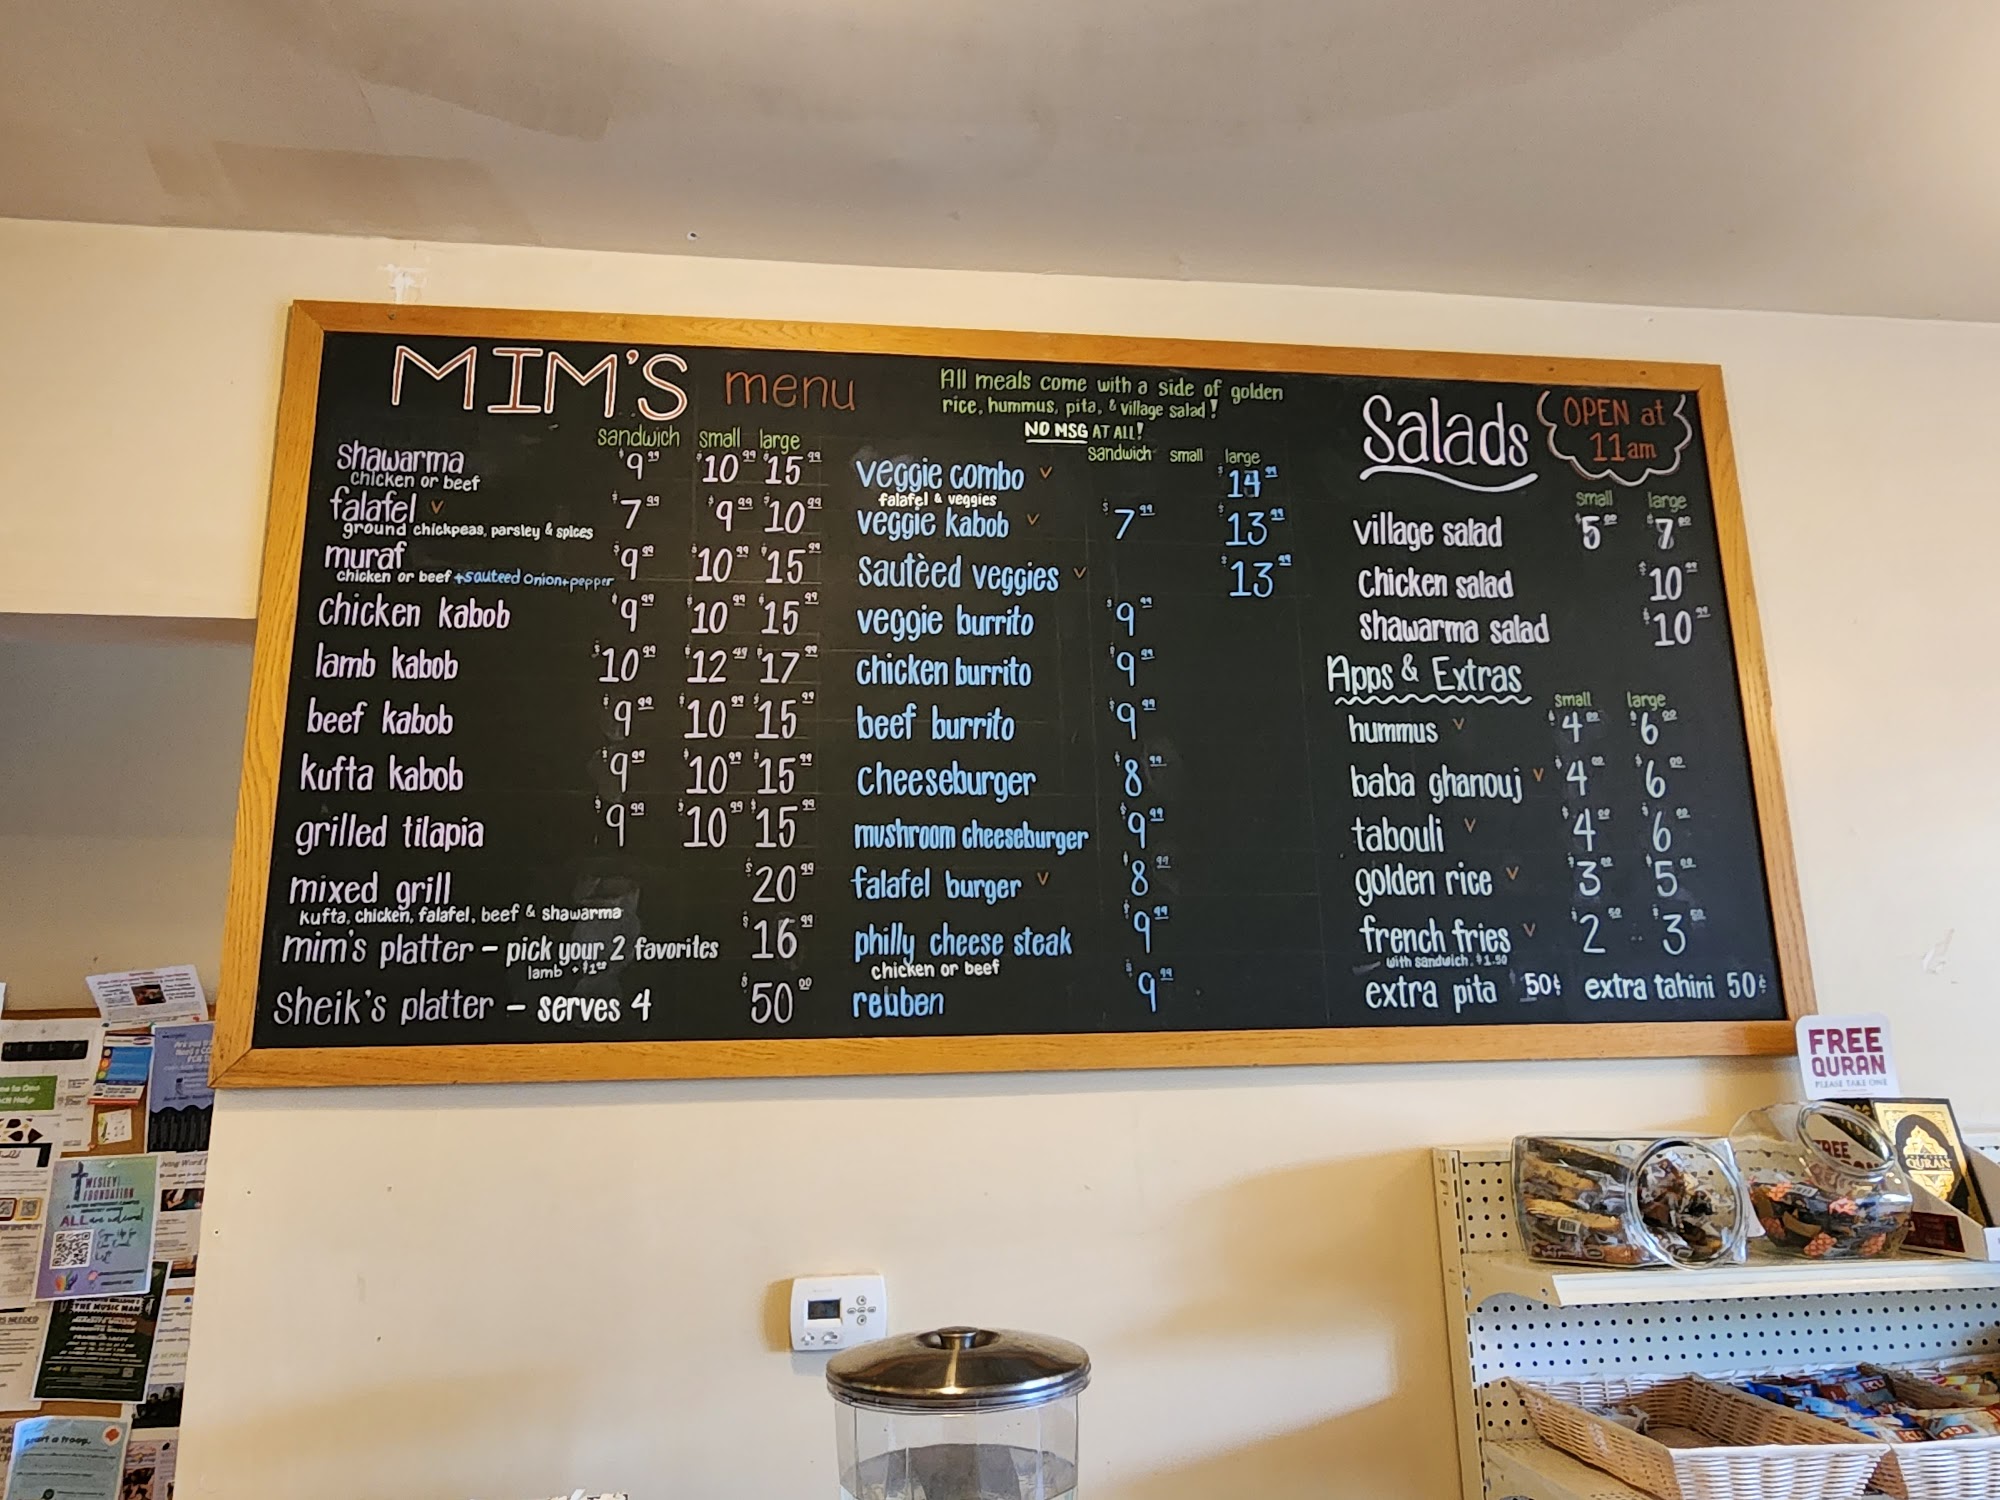 MIM'S menu
All meals come with a side of golden
rice, hummus, pita, & village salad!
NO MSG AT ALL!
sandwich small large
shawarma $9.99 $10.99 $15.99
chicken or beef
falafel v $7.99 $9.99 $10.99
ground chickpeas, parsley & spices
muraf $9.99 $10.99 $15.99
chicken or beef + sauteed onion + pepper
chicken kabob $9.99 $10.99 $15.99
lamb kabob $10.99 $12.49 $17.99
beef kabob $9.99 $10.99 $15.99
kufta kabob $9.99 $10.99 $15.99
grilled tilapia $9.99 $10.99 $15.99
mixed grill $20.99
kufta, chicken, falafel, beef & shawarma
mim's platter - pick your 2 favorites $16.99
lamb + $1.00
sheik's platter - serves 4 $50.00
sandwich small large
veggie combo v $14.99
falafel & veggies
veggie kabob v $7.99 $13.99
sautèed veggies v $13.99
veggie burrito $9.99
chicken burrito $9.99
beef burrito $9.99
cheeseburger $8.99
mushroom cheeseburger $9.99
falafel burger v $8.99
philly cheese steak $9.99
chicken or beef
reuben $9.99
Salads
OPEN at
11am
small large
village salad $5.00 $7.00
chicken salad $10.99
shawarma salad $10.99
Apps & Extras
small large
hummus v $4.00 $6.00
baba ghanouj v $4.00 $6.00
tabouli v $4.00 $6.00
golden rice v $3.00 $5.00
french fries v $2.50 $3.50
with sandwich, $1.50
extra pita 50¢ extra tahini 50¢
FREE
QURAN
PLEASE TAKE ONE
QURAN
WESLEY
FOUNDATION
ALL are welcome!
THE MUSIC MAN
start a troop.